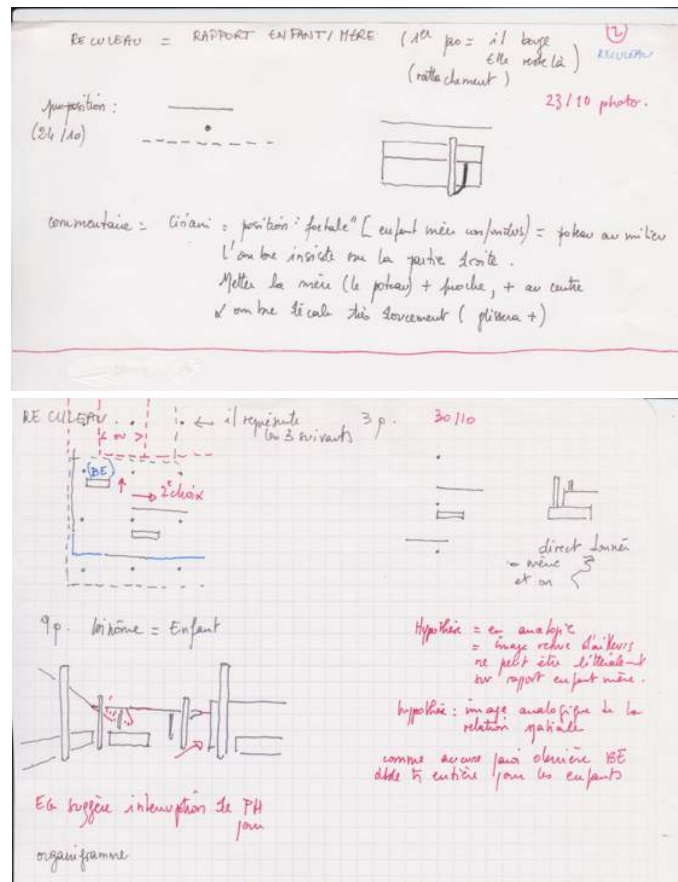 RECULEAU = RAPPORT ENFANT/MÈRE (1er pas = il bouge
Elle reste là)
(rattachement)
2
RECULEAU
23/10 photo.
proposition :
(24/10)
commentaire = = position "foetale" [enfant mère ) = poteau au milieu
L'ombre insiste sur la partie droite.
Mettre la mère (le poteau) + proche, + au centre
L'ombre décale très doucement (glissera +)
RECULEAU
< ou >
← il représente
les 3 suivants
3 p.
30/10
BE
2e choix
direct donnée
mère
et on
9 p. binôme = Enfant
Hypothèse = en analogie
= image venue d'ailleurs
ne peut être littéralement
sur rapport enfant mère.
hypothèse : image analogique de la
relation spatiale
comme aucune paroi derrière BE
entière pour les enfants
EG suggère interruption de PH
pour
organigramme